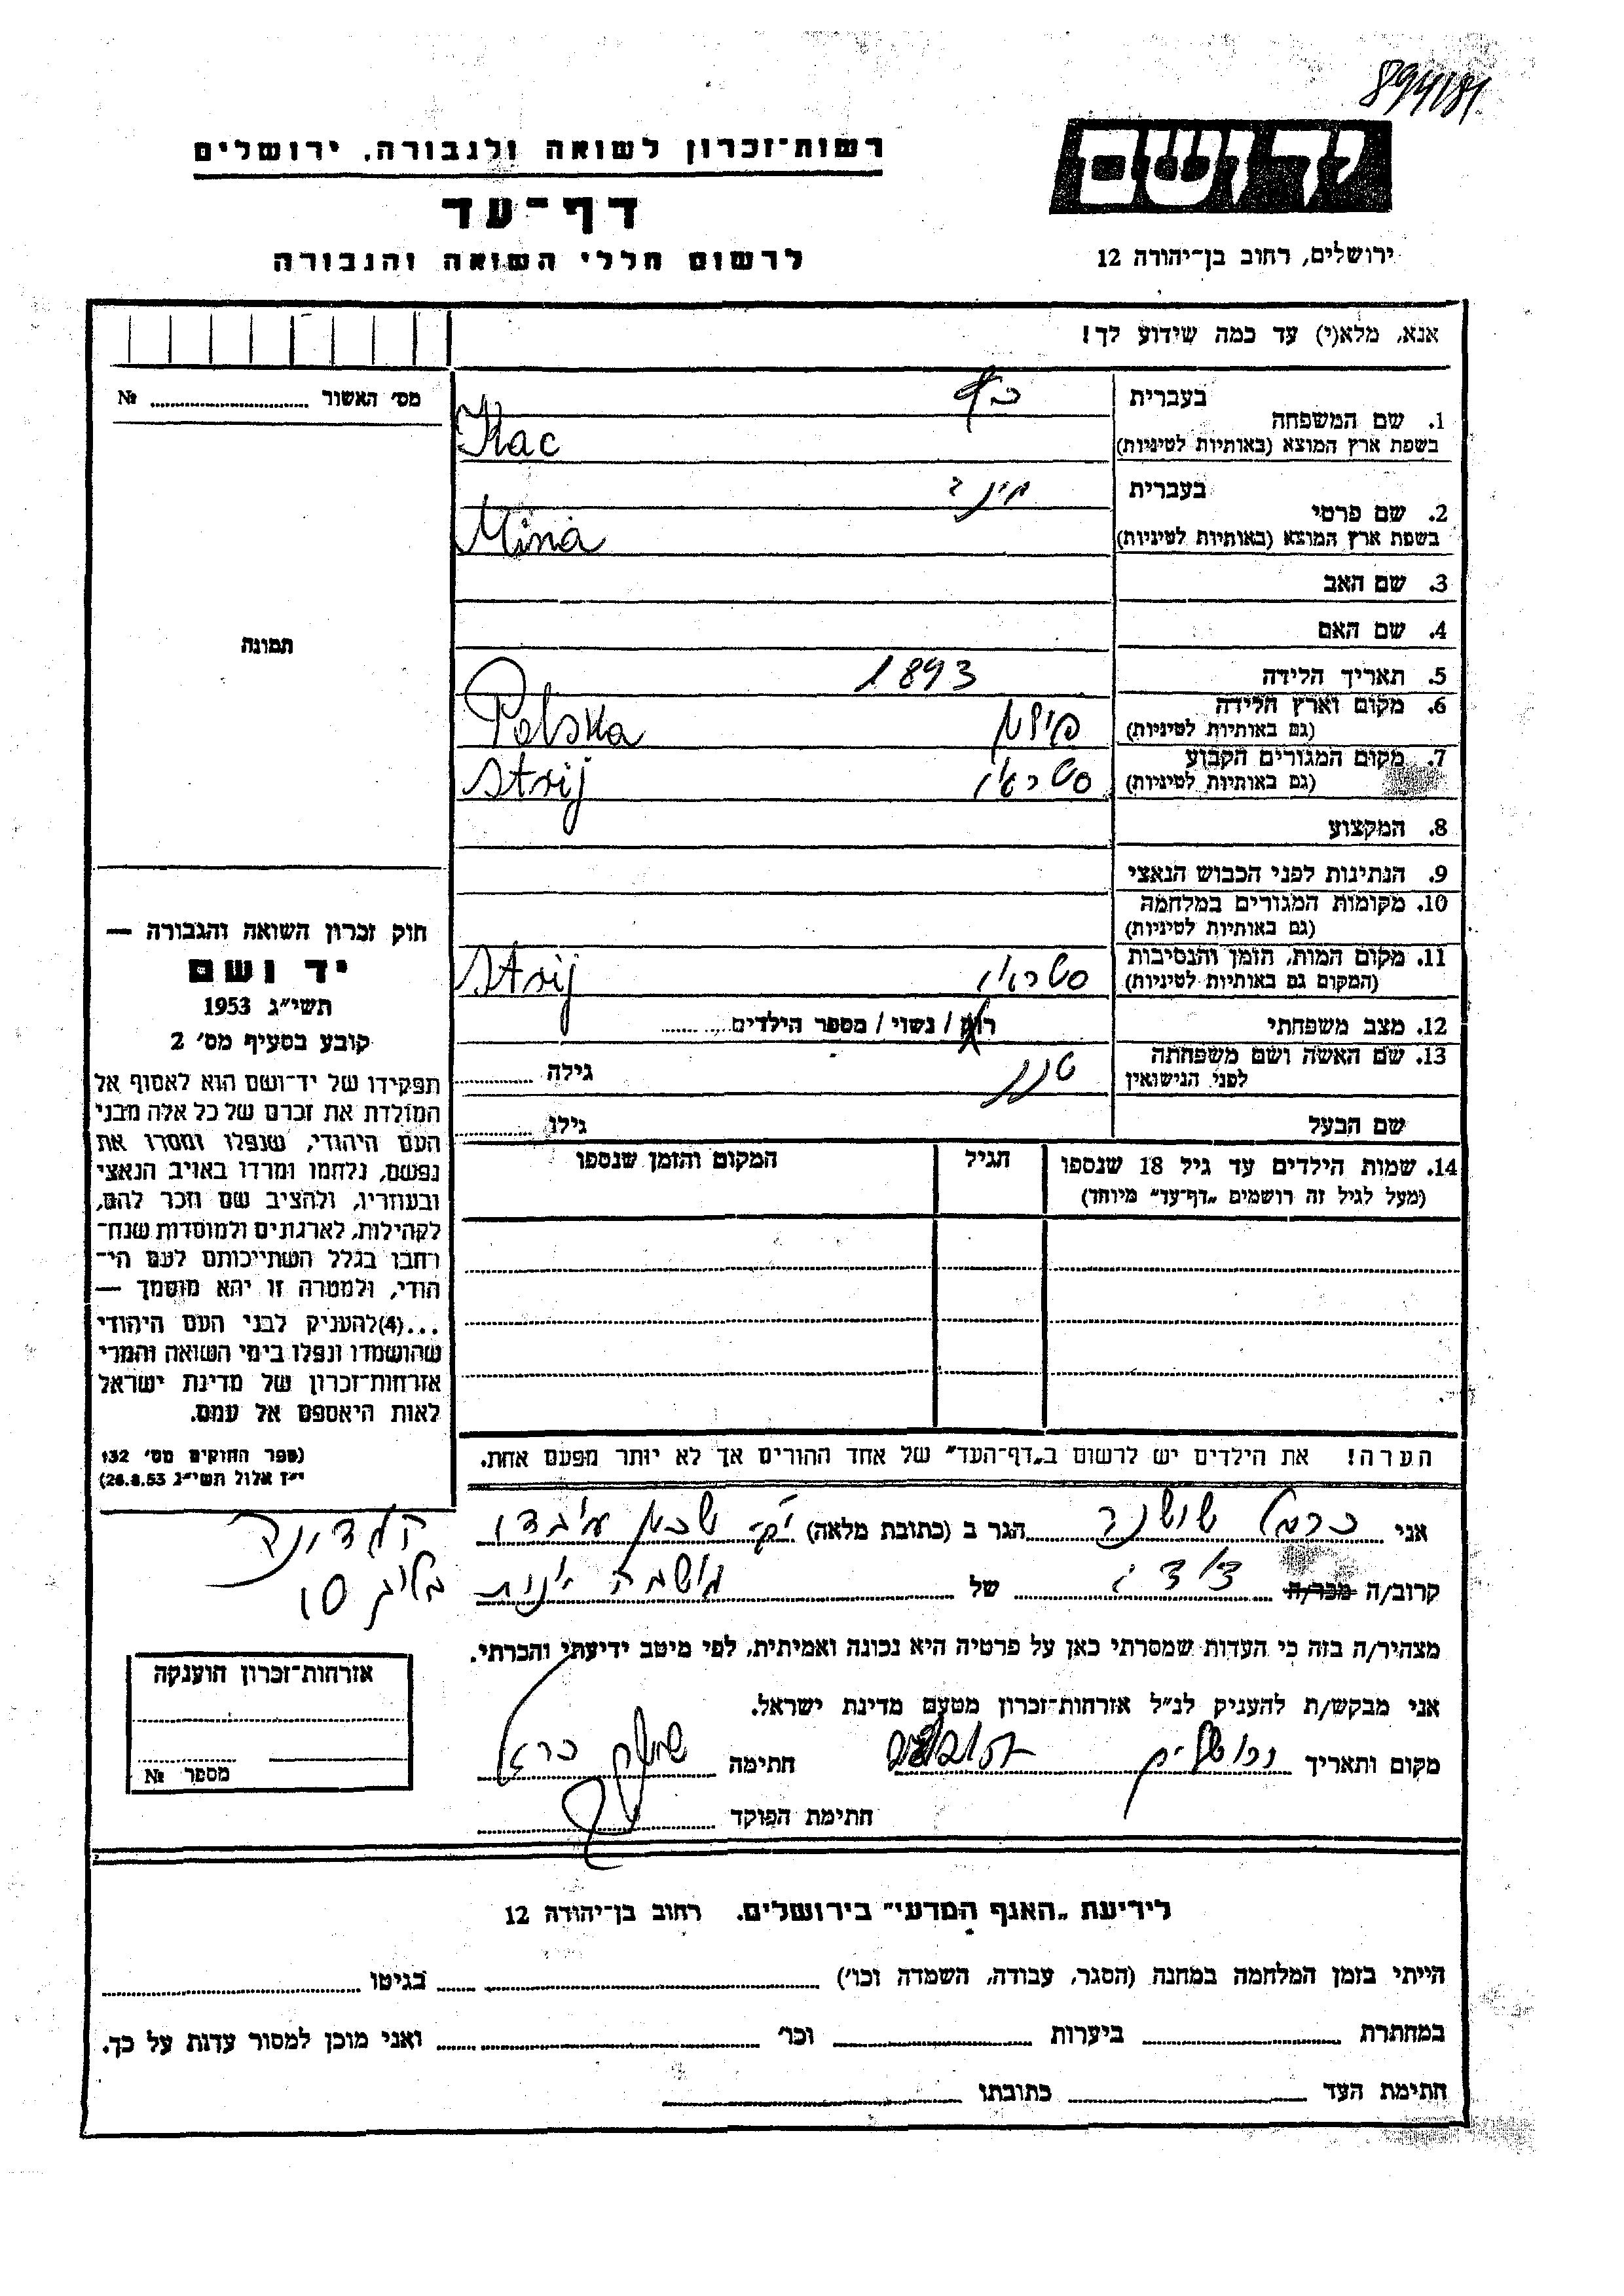 894/81
רשות־זכרון לשואה ולגבורה, ירושלים
יד ושם
דף־עד
לרשום חללי השואה והגבורה
ירושלים, רחוב בן־יהודה 12
אנא, מלא(י) עד כמה שידוע לך!
מס׳ האשור № 
1. שם המשפחה
בעברית כץ
בשפת ארץ המוצא (באותיות לטיניות) Kac
2. שם פרטי
בעברית מינה
בשפת ארץ המוצא (באותיות לטיניות) Mina
3. שם האב
4. שם האם
תמונה
5. תאריך הלידה 1893
6. מקום וארץ הלידה פולין Polska
(גם באותיות לטיניות)
7. מקום המגורים הקבוע Strij
(גם באותיות לטיניות)
8. המקצוע
9. הנתינות לפני הכבוש הנאצי
10. מקומות המגורים במלחמה
(גם באותיות לטיניות)
11. מקום המות, הזמן והנסיבות Strij
(המקום גם באותיות לטיניות)
12. מצב משפחתי רוק / נשוי / מספר הילדים
13. שם האשה ושם משפחתה גילה
לפני הנישואין
שם הבעל גילו
14. שמות הילדים עד גיל 18 שנספו הגיל המקום והזמן שנספו
(מעל לגיל זה רושמים „דף־עד״ מיוחד)
חוק זכרון השואה והגבורה —
יד ושם
תשי״ג 1953
קובע בסעיף מס׳ 2
תפקידו של יד־ושם הוא לאסוף אל
המולדת את זכרם של כל אלה מבני
העם היהודי, שנפלו ומסרו את
נפשם, נלחמו ומרדו באויב הנאצי
ובעוזריו, ולהציב שם וזכר להם,
לקהילות, לארגונים ולמוסדות שנח־
רבו בגלל השתייכותם לעם הי־
הודי, ולמטרה זו יהא מוסמך —
...(4)להעניק לבני העם היהודי
שהושמדו ונפלו בימי השואה והמרי
אזרחות־זכרון של מדינת ישראל
לאות היאספם אל עמם.
(ספר החוקים מס׳ 132
י״ז אלול תשי״ג 28.8.53)
הערה! את הילדים יש לרשום ב„דף־העד״ של אחד ההורים אך לא יותר מפעם אחת.
אני כרמל שושנה הגר ב (כתובת מלאה)
קרוב/ה מכר/ה דודה של
10
מצהיר/ה בזה כי העדות שמסרתי כאן על פרטיה היא נכונה ואמיתית, לפי מיטב ידיעתי והכרתי.
אני מבקש/ת להעניק לנ״ל אזרחות־זכרון מטעם מדינת ישראל.
מקום ותאריך ירושלים חתימה
חתימת הפוקד
אזרחות־זכרון הוענקה
מספר №
לידיעת „האגף המדעי״ בירושלים. רחוב בן־יהודה 12
הייתי בזמן המלחמה במחנה (הסגר, עבודה, השמדה וכו׳) בגיטו
במחתרת ביערות וכו׳ ואני מוכן למסור עדות על כך.
חתימת העד כתובתו